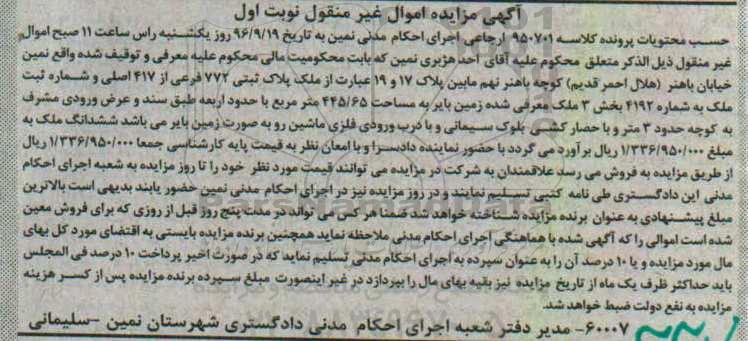 آگهی مزایده اموال غیر منقول نوبت اول
حسب محتویات پرونده کلاسه ۹۵۰۷۰۱ ارجاعی اجرای احکام مدنی نمین به تاریخ ۹۶/۹/۱۹ روز یکشنبه راس ساعت ۱۱ صبح اموال
غیر منقول ذیل الذکر متعلق محکوم علیه آقای احد هژبری نمین که بابت محکومیت مالی محکوم علیه معرفی و توقیف شده واقع نمین
خیابان باهنر (هلال احمر قدیم) کوچه باهنر نهم مابین پلاک ۱۷ و ۱۹ عبارت از ملک پلاک ثبتی ۷۷۲ فرعی از ۴۱۷ اصلی و شماره ثبت
ملک به شماره ۴۱۹۲ بخش ۳ ملک معرفی شده زمین بایر به مساحت ۴۴۵/۶۵ متر مربع با حدود اربعه طبق سند و عرض ورودی مشرف
به کوچه حدود ۳ متر و با حصار کشی بلوک سیمانی و با درب ورودی فلزی ماشین رو به صورت زمین بایر می باشد ششدانگ ملک به
مبلغ ۱/۳۳۶/۹۵۰/۰۰۰ ریال برآورد می گردد با حضور نماینده دادسرا و با امعان نظر به قیمت پایه کارشناسی جمعا ۱/۳۳۶/۹۵۰/۰۰۰ ریال
از طریق مزایده به فروش می رسد علاقمندان به شرکت در مزایده می توانند قیمت مورد نظر خود را تا روز مزایده به شعبه اجرای احکام
مدنی این دادگستری طی نامه کتبی تسلیم نمایند و در روز مزایده نیز در اجرای احکام مدنی نمین حضور یابند بدیهی است بالاترین
مبلغ پیشنهادی به عنوان برنده مزایده شناخته خواهد شد ضمنا هر کس می تواند در مدت پنج روز قبل از روزی که برای فروش معین
شده است اموالی را که آگهی شده با هماهنگی اجرای احکام مدنی ملاحظه نماید همچنین برنده مزایده بایستی به اقتضای مورد کل بهای
مال مورد مزایده و یا ۱۰ درصد آن را به عنوان سپرده به اجرای احکام مدنی تسلیم نماید که در صورت اخیر پرداخت ۱۰ درصد فی المجلس
باید حداکثر ظرف یک ماه از تاریخ مزایده نیز بقیه بهای مال را بپردازد در غیر اینصورت مبلغ سپرده برنده مزایده پس از کسر هزینه
مزایده به نفع دولت ضبط خواهد شد.
۶۰۰۰۷- مدیر دفتر شعبه اجرای احکام مدنی دادگستری شهرستان نمین -سلیمانی